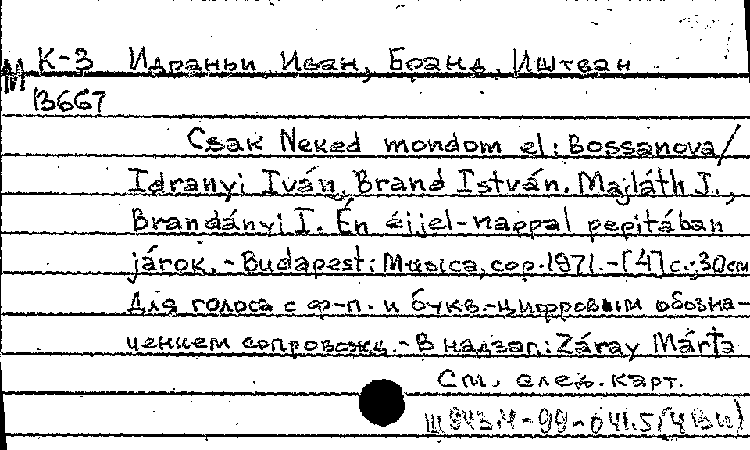 К-3 Идраньи Иван, Бранд, Иштван
М
13667
Csak Neked mondom el: Bossanova/
Idranyi Iván, Brand István. Majláth J.,
Brandányi I. Én éjjel-nappal pepitában
járok. - Budapest: Musica, cop. 1971. - [4] с.; 30см
Для голоса с ф-п. и букв.-цифровым обозна-
чением сопровожд. - В надзаг.: Záray Márta
См. след. карт.